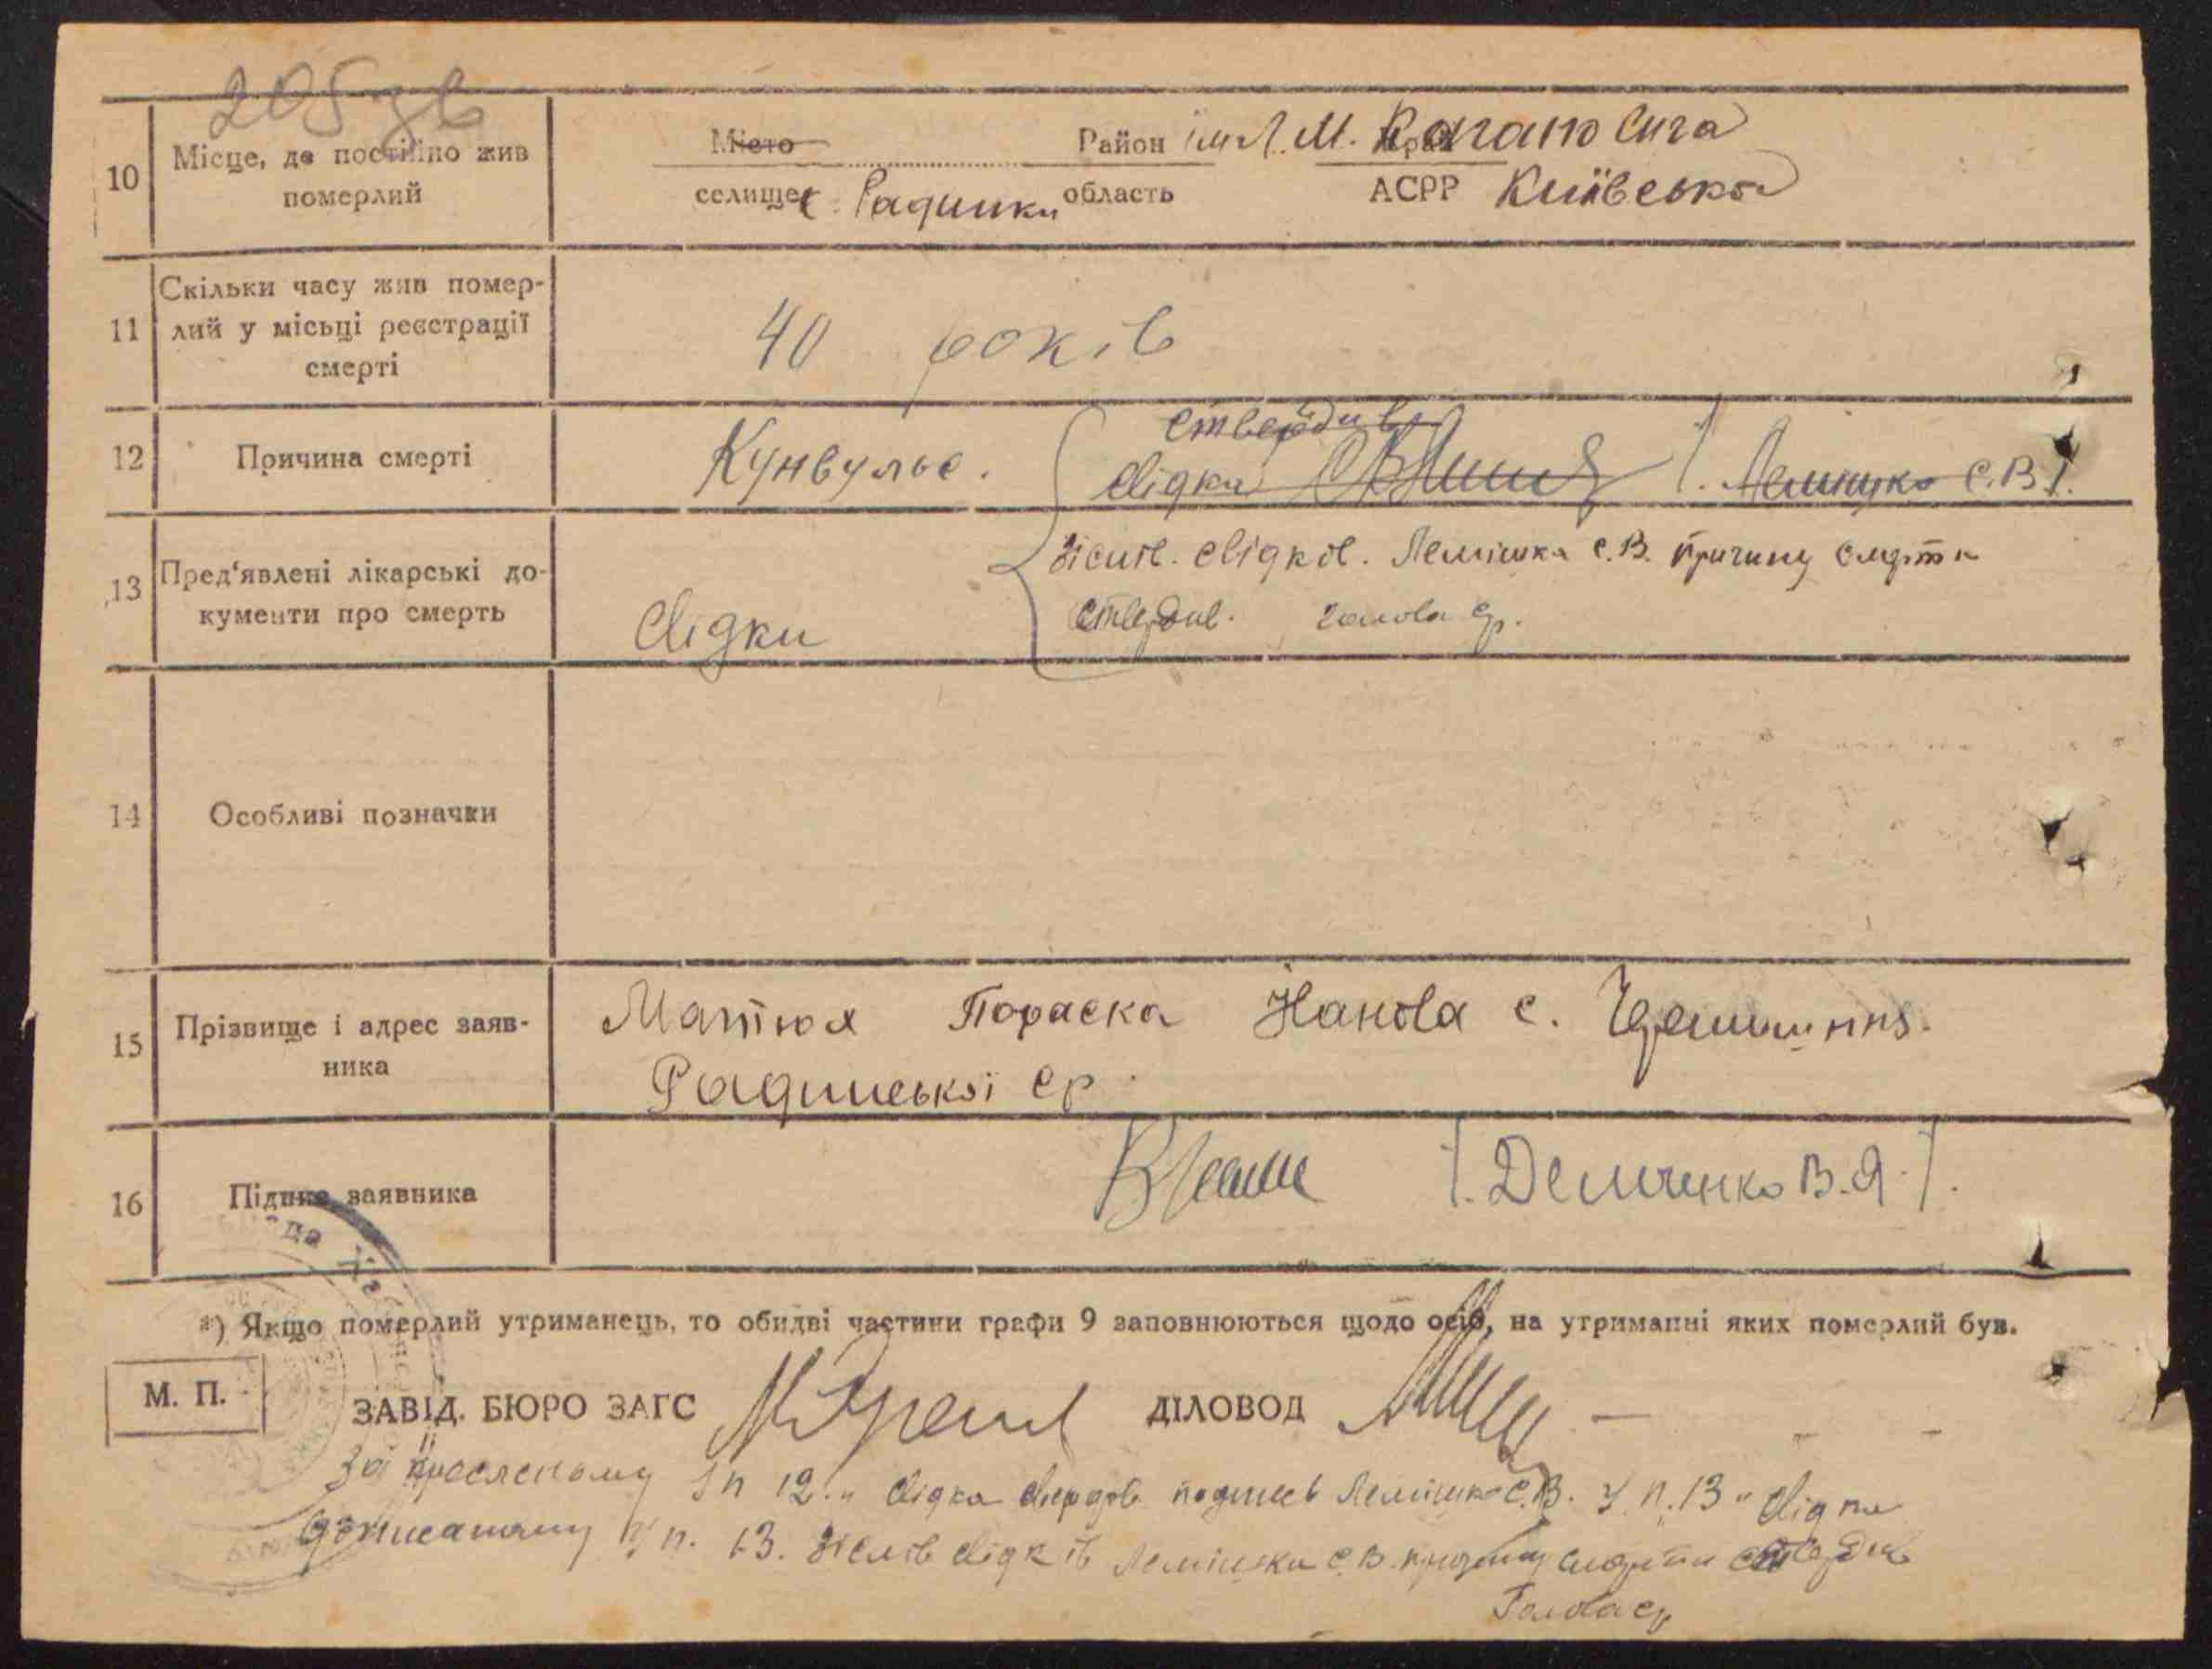 205 зв
10 Місце, де постійно жив померлий
Місто Район ім Л. М. Кагановича край
селище с. Радинки область АСРР Київська
11 Скільки часу жив помер-
лий у місьці реєстрації
смерті
40 років
12 Причина смерті
Кунвульс.
ствердив
свідка Лемішко С.В.
13 Пред‘явлені лікарські до-
кументи про смерть
Свідки
Зі слів. свідків. Лемішка С.В. причину смерти
ствердив. голова ср.
14 Особливі позначки
15 Прізвище і адрес заяв-
ника
Матюх Параска Йанова с.
Радинської ср.
16 Підпис заявника
Демченко В.Я.
*) Якщо померлий утриманець, то обидві частини графи 9 заповнюються щодо осіб, на утриманні яких померлий був.
М. П.
ЗАВІД. БЮРО ЗАГС ДІЛОВОД
За У п 12 " свідка подпись Лемішко С.В. У п. 13 "
дописаному у п. 13. Зі слів свідків Лемішка С.В. причину смерти ствердив
Голова ср